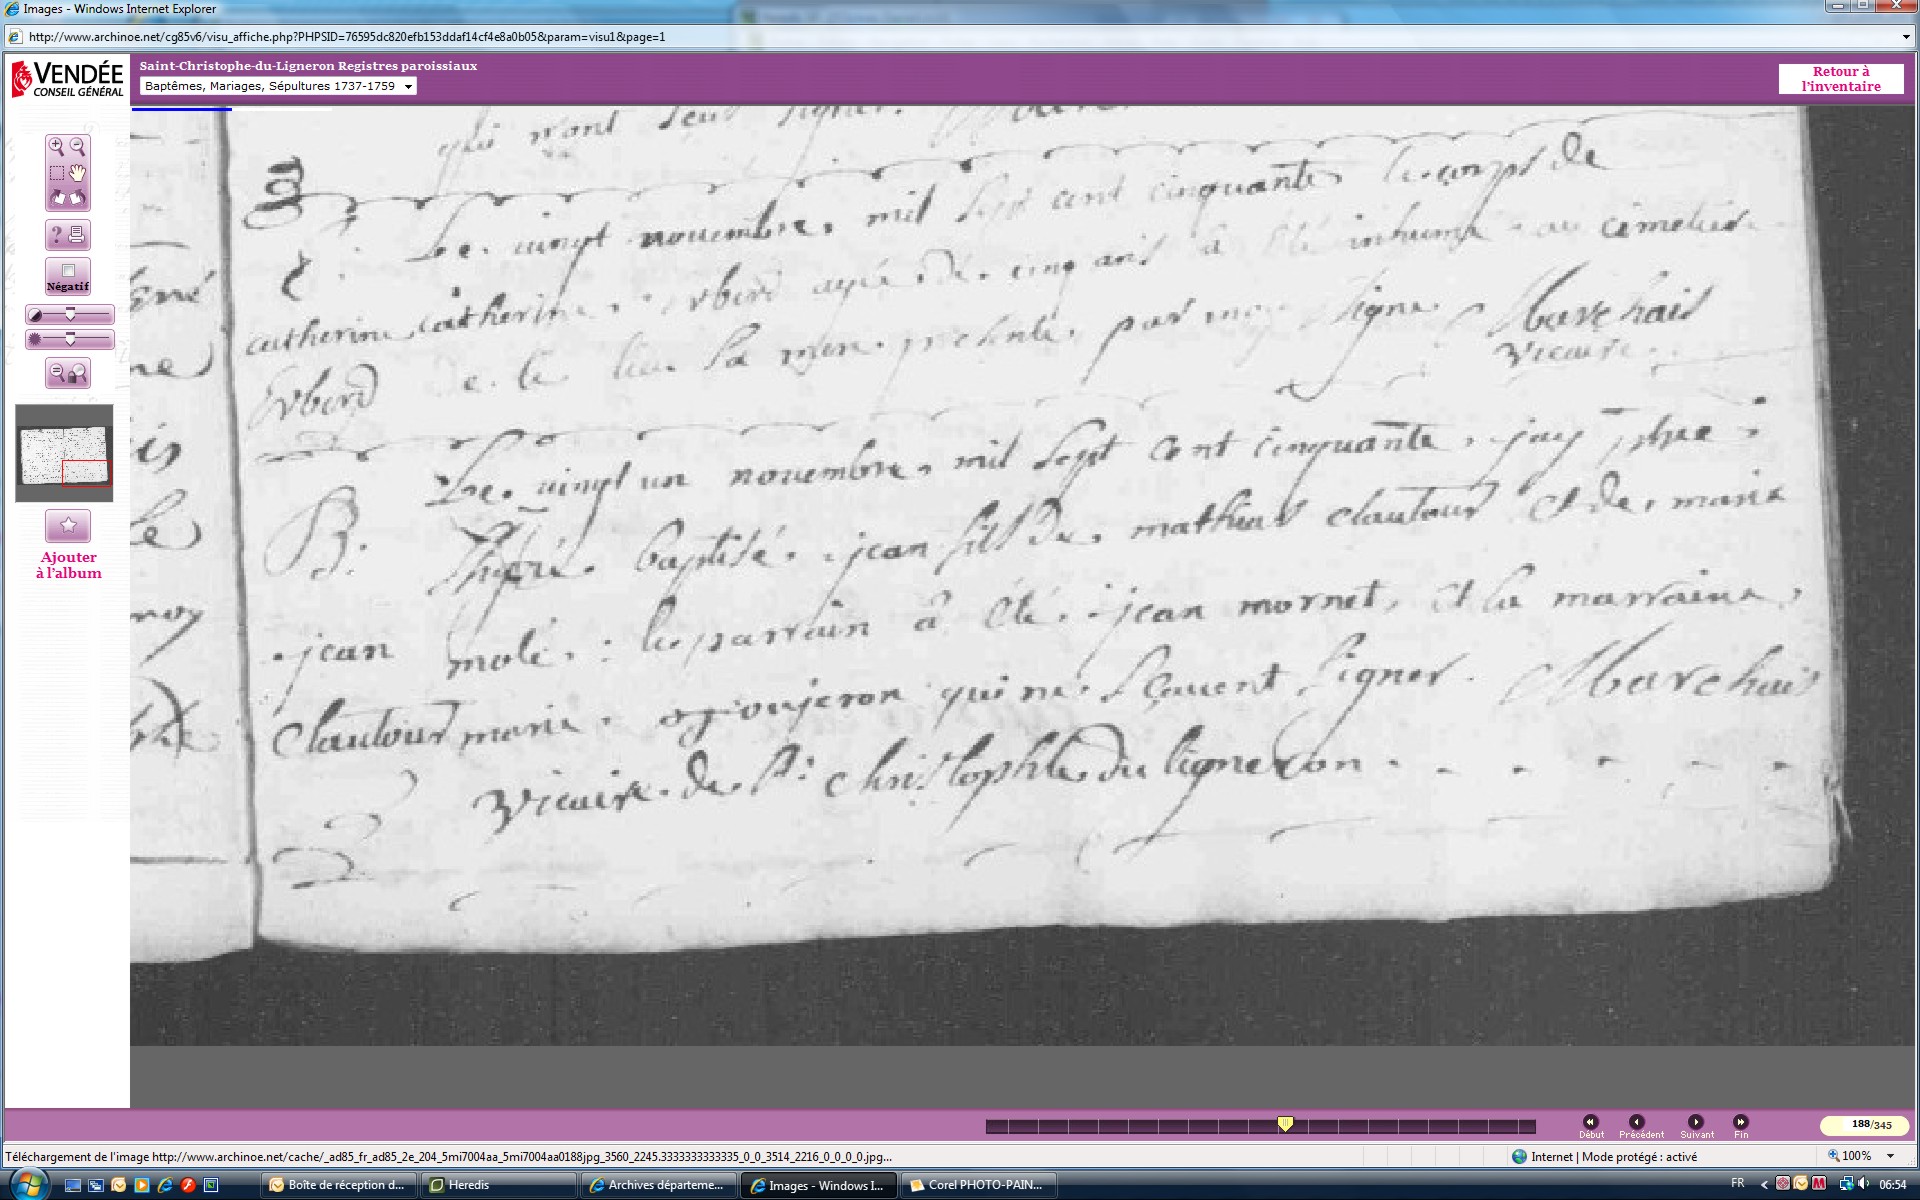 Images - Windows Internet Explorer
http://www.archinoe.net/cg85v6/visu_affiche.php?PHPSID=76595dc820efb153ddaf14cf4e8a0b05&param=visu1&page=1
VENDÉE
CONSEIL GÉNÉRAL
Saint-Christophe-du-Ligneron Registres paroissiaux
Baptêmes, Mariages, Sépultures 1737-1759
Retour à
l'inventaire
Négatif
Ajouter
à l'album
qui n'ont seu signer.
Le vingt novembre mil sept cent cinquante le corps de
catherine Erberd agée de cinq ans a été inhumé au cimetière
de ce lieu la mere presente par moy signé Marchais
vicaire
catherine
Erberd
Le vingt un novembre mil sept cent cinquante, j'ay
B.
baptisé jean fils de mathieu clautour et de marie
molé : le parrain a été jean mornet, et la marraine
jean
clautour
marie qui ne scavent signer. Marchais
vicaire de St. christophle du ligneron
188/345
Début
Précédent
Suivant
Fin
Téléchargement de l'image http://www.archinoe.net/cache/_ad85_fr_ad85_2e_204_5mi7004aa_5mi7004aa0188jpg_3560_2245.3333333333335_0_0_3514_2216_0_0_0_0.jpg...
Internet | Mode protégé : activé
100%
Boîte de réception d...
Heredis
Archives départeme...
Images - Windows I...
Corel PHOTO-PAIN...
FR
06:54